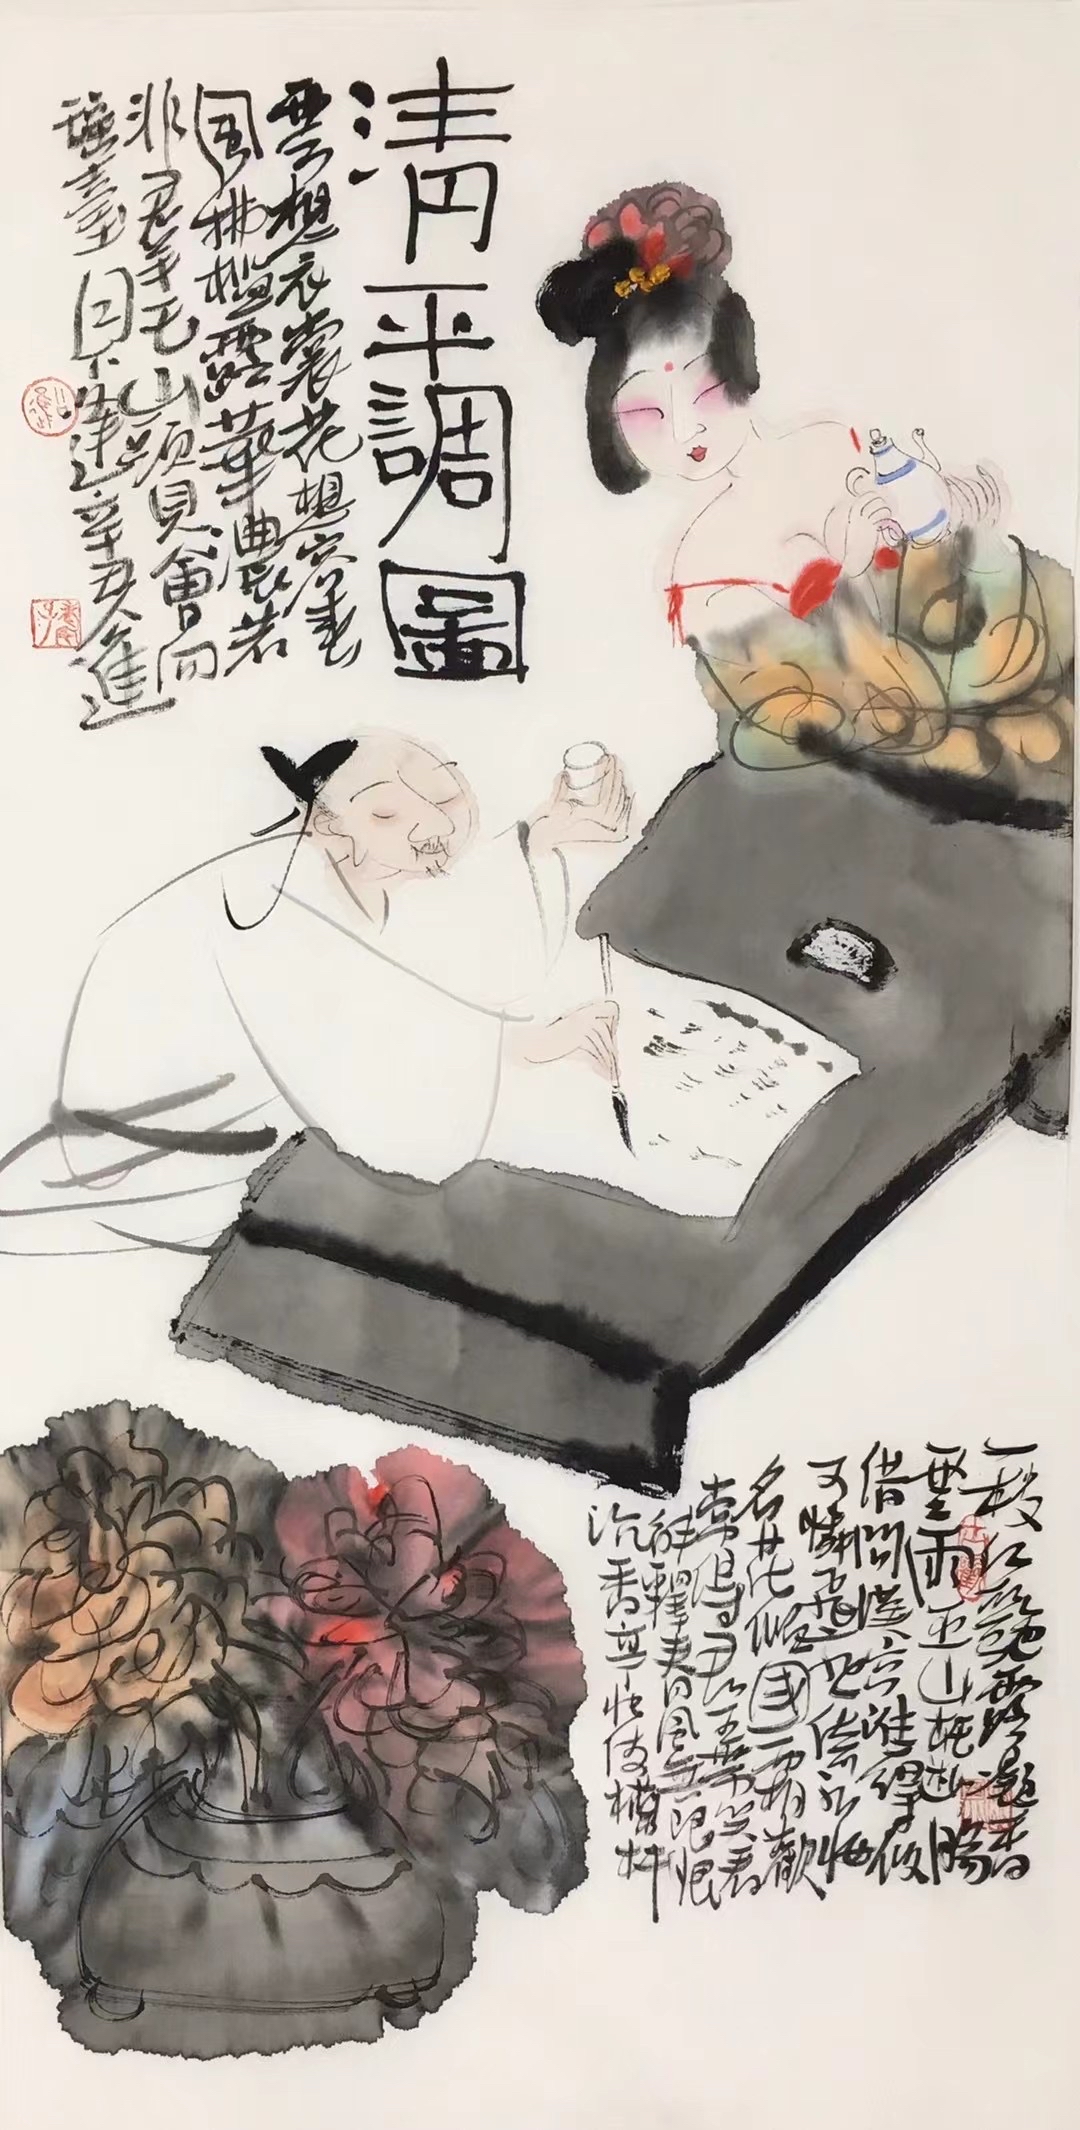 清平調圖
雲想衣裳花想容春
風拂檻露華濃若
非羣玉山頭見會向
瑤臺月下逢辛丑進
一枝紅艷露凝香
雲雨巫山枉斷腸
借問漢宮誰得似
可憐飛燕倚新妝
名花傾國兩相歡
常得君王帶笑看
解釋春風無限恨
沉香亭北倚欄杆